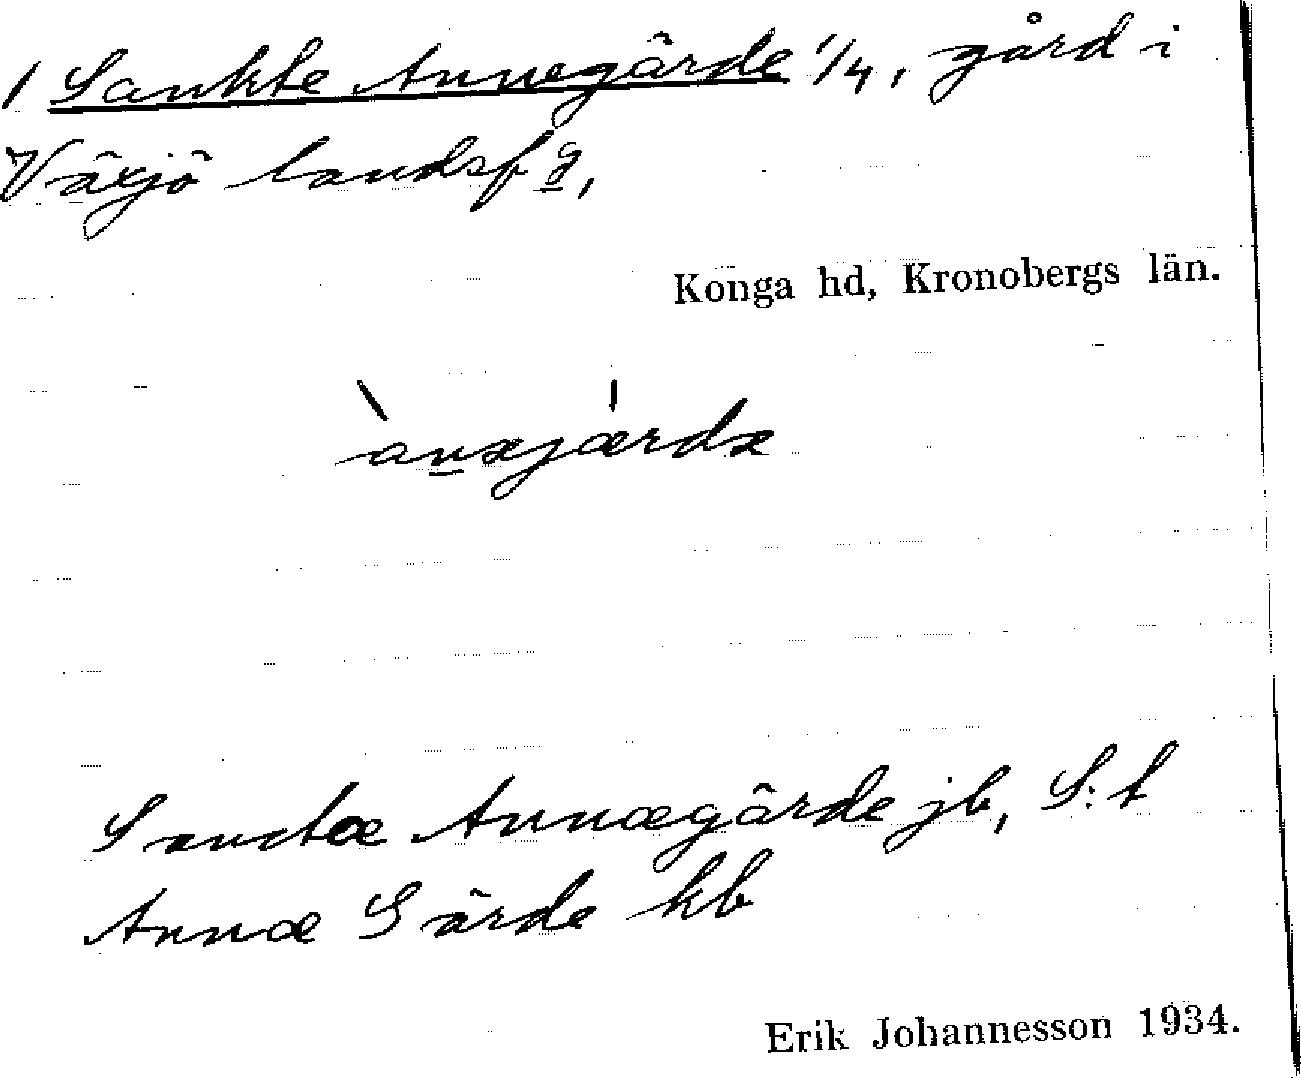 1 Sankte Annegärde 1/4, gård i
Växjö landsfg,
Konga hd, Kronobergs län.
Sanctæ Annægärde jb, S:t
Annæ Gärde kb
Erik Johannesson 1934.